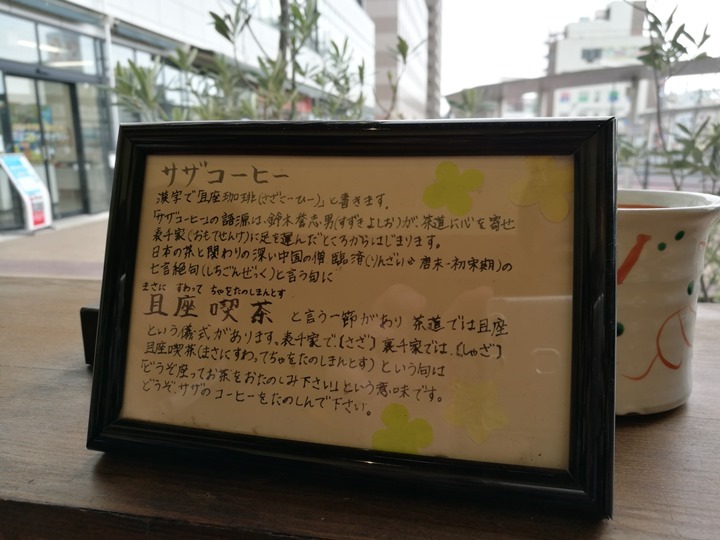 サザコーヒー
漢字で「且座珈琲(さざこーひー)」と書きます。
「サザコーヒー」の語源は、鈴木誉志男(すずきよしお)が、茶道に心を寄せ
表千家(おもてせんけ)に足を運んだところからはじまります。
日本の茶と関わりの深い中国の僧 臨済(りんざい 唐末-初宋期)の
七言絶句(しちごんぜっく)と言う句に
まさに すわって ちゃをたのしまんとす
且座喫茶 と言う一節があり 茶道では且座
という儀式があります。表千家で〔さざ〕裏千家では〔しゃざ〕
且座喫茶(まさにすわってちゃをたのしまんとす) という句は
「どうぞ座ってお茶をおたのしみ下さい」という意味です。
どうぞ、サザのコーヒーをたのしんで下さい。